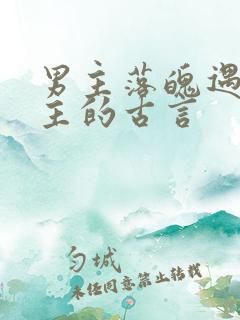 男主落魄遇
主的古言
匀城
未经同意禁止转载